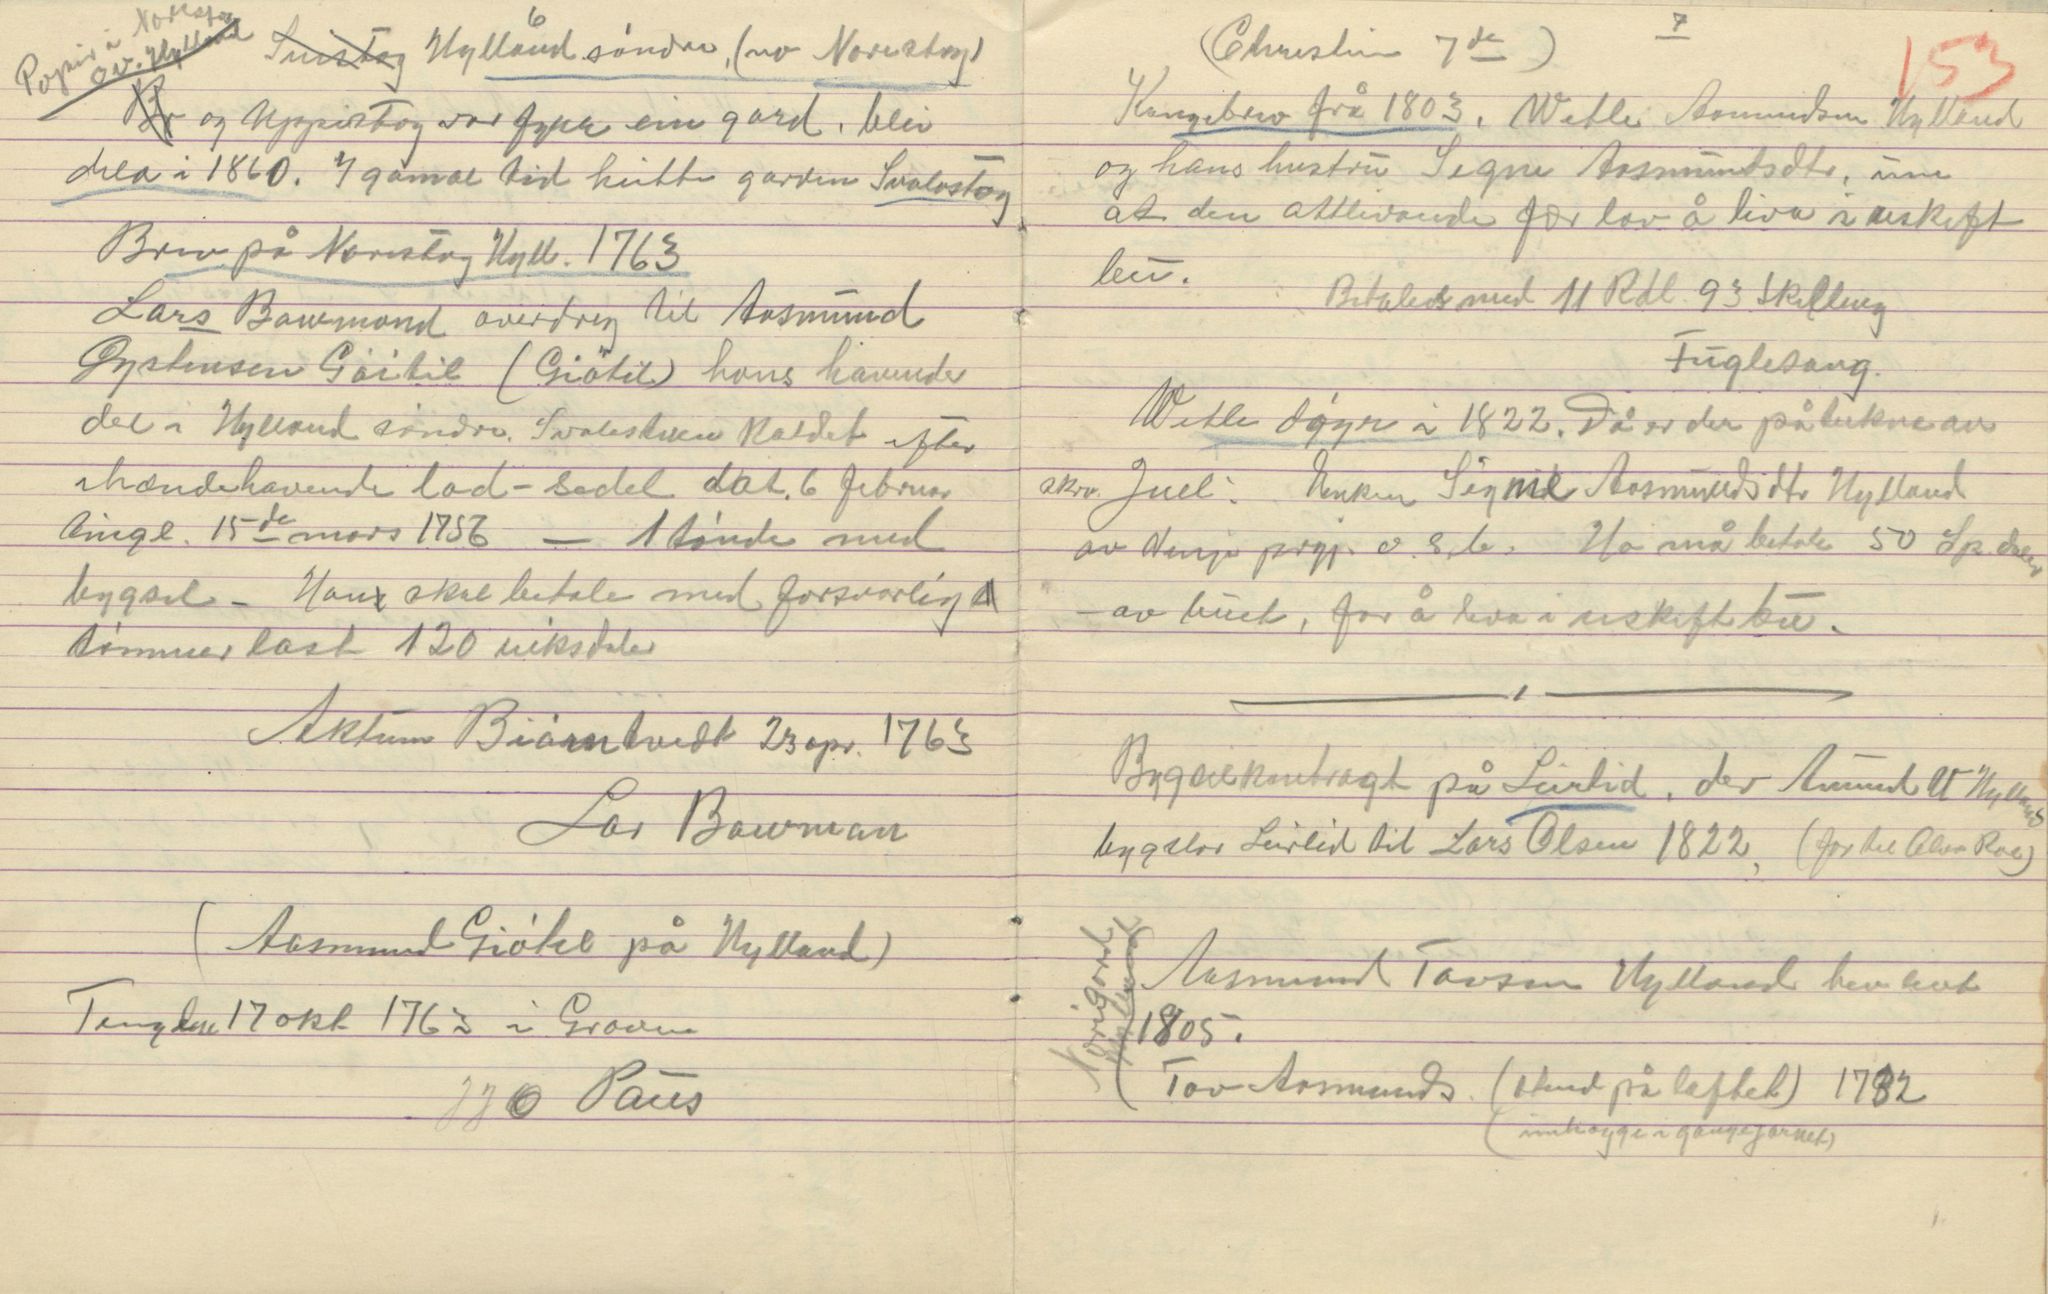 6
Papir i Noristog
ov. Hylland
Hylland söndre, (no Noristog)
og Uppistog var fyrr ein gard, blei
dela i 1860. I gamal tid heitte garden Svalastog
Brev på Noristog Hyll. 1763
Lars Bawmand overdreg til Aasmund
Øystensen Göitil (Giötil) hans havende
del i Hylland söndre, Svalestuen kaldet efter
ihændehavende lod-sedel dat. 6 februar
tingl. 15de mars 1756 — 1 tönde med
bygsel – Han skal betale med forsvarlig
tömmerlast 120 riksdaler
Aktum Biörntvedt 23 apr. 1763
Lar Bawman
(Aasmund Giötil på Hylland)
Tinglese 17 okt 1763 i Graven
Paus
7
153
(Christian 7de)
Kongebrev frå 1803, Wetle Aasmundsen Hylland
og hans hustru Signe Aasmundsdtr, um
at den attlevande fær lov å liva i uskift
bu.
Betales med 11 Rdl. 93 Skilling
Fuglesang.
Wetle döyr i 1822. Då er der påteikne av
skrv. Juel: Enken Signe Aasmundsdtr Hylland
av o.s.b. Ho må betale 50 Sp.daler
av buet, for å leva i uskift bu.
Bygselkontragt på Leirlid, der Amund W Hylland
bygslar Leirlid til Lars Olsen 1822, (far til Olea Roe)
Norigard
Hylland
Aasmund Tovsen Hylland hev livt
1805.
Tov Aasmunds. (stend på loftet) 1782
(innhogge i gangejarnet)